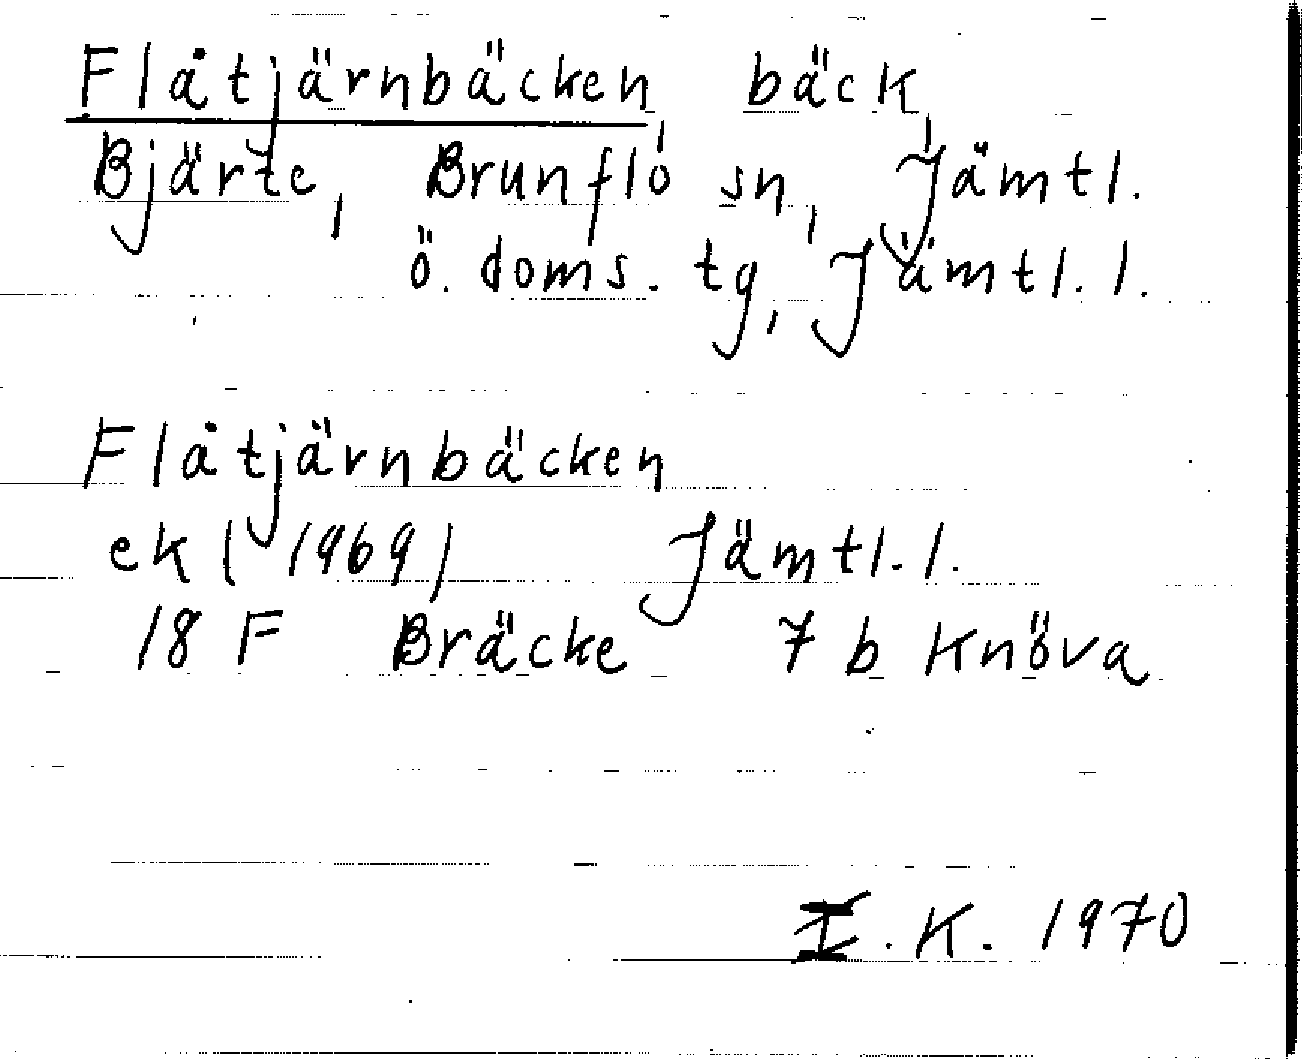 Flåtjärnbäcken, bäck,
Bjärte, Brunflo sn, Jämtl.
ö. doms. tg, Jämtl. l.
Flåtjärnbäcken
ek (1969) Jämtl. l.
18 F Bräcke 7 b Knöva
I. K. 1970